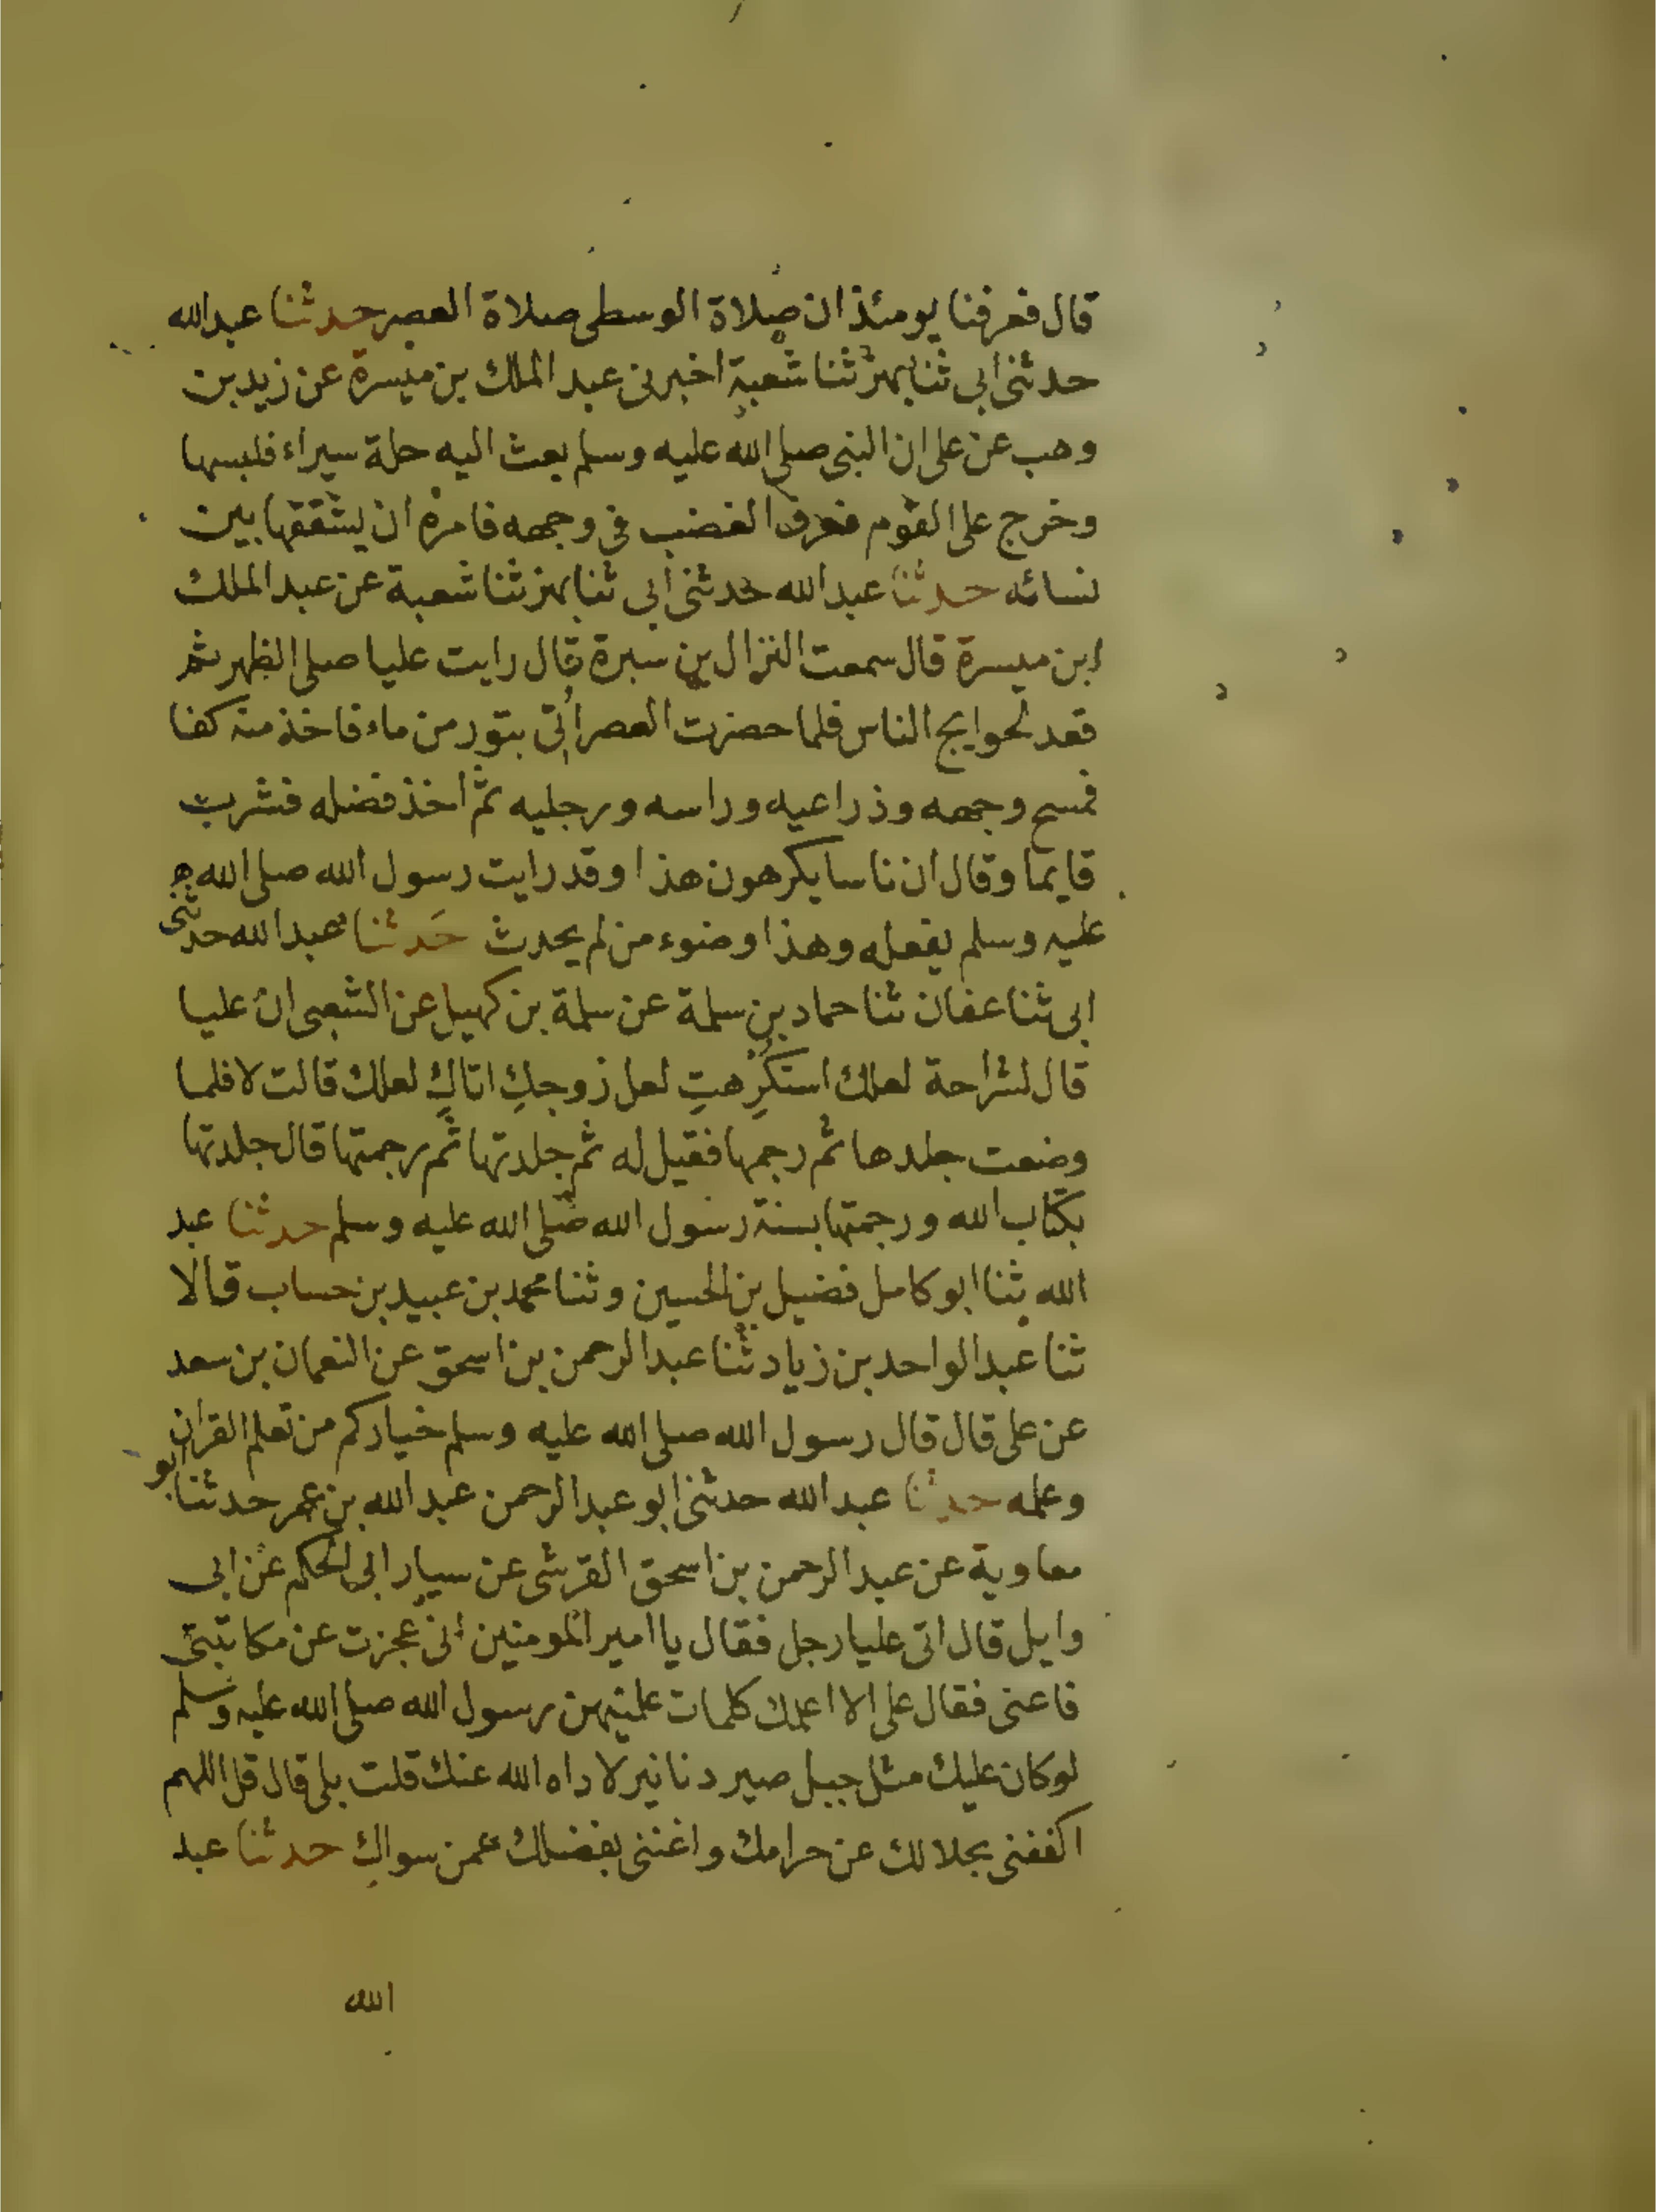 قال فعرفنا يومئذ ان صلاة الوسطى صلاة العصر حدثنا عبد الله
حدثنى ابى ثنا بهز ثنا شعبة اخبرنى عبد الملك بن ميسرة عن زيد بن
وهب عن على ان النبى صلى الله عليه وسلم بعث اليه حلة سيراء فلبسها
وخرج على القوم فعرف الغضب فى وجهه فامره ان يشققها بين
نسائه حدثنا عبد الله حدثنى ابى ثنا بهز ثنا شعبة عن عبد الملك
ابن ميسرة قال سمعت النزال بن سبرة قال رايت عليا صلى الظهر ثم
قعد لحوايج الناس فلما حضرت العصر اُتى بتور من ماء فاخذ منه كفا
فمسح وجهه وذراعيه وراسه ورجليه ثم اخذ فضله فشرب
قايما وقال ان ناسا يكرهون هذا وقد رايت رسول الله صلى الله
عليه وسلم يفعله وهذا وضوء من لم يحدث حَدثنا عبد الله حدثنى
ابى ثنا عفان ثنا حماد بن سلمة عن سلمة بن كهيل عن الشعبى ان عليا
قال لشراحة لعلك استكرِهتِ لعل زوجكِ اتاكِ لعلك قالت لا فلما
وضعت جلدها ثم رجمها فقيل له ثم جلدتها ثم رجمتها قال جلدتها
بكتاب الله ورجمتها بسنة رسول الله صلى الله عليه وسلم حدثنا عبد
الله ثنا ابو كامل فضيل بن الحسين وثنا محمد بن عبيد بن حساب قالا
ثنا عبد الواحد بن زياد ثنا عبد الرحمن بن اسحق عن النعمان بن سعد
عن على قال قال رسول الله صلى الله عليه وسلم خياركم من تعلم القران
وعلمه حدثنا عبد الله حدثنى ابو عبد الرحمن عبد الله بن عمر حدثنا ابو
معاوية عن عبد الرحمن بن اسحق القرشى عن سيار ابى الحكم عن ابى
وايل قال اتى عليا رجل فقال يا امير المومنين انى عجزت عن مكاتبتى
فاعنى فقال على الا اعلمك كلمات علمنيهن رسول الله صلى الله عليه وسلم
لو كان عليك مثل جبل صير دنانير لاداه الله عنك قلت بلى قال قل اللهم
اكففنى بحلالك عن حرامك واغننى بفضلك عمن سواك حدثنا عبد
الله